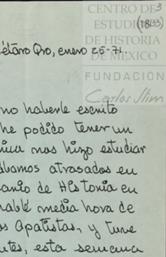 CENTRO DE
ESTUDIOS
DE HISTORIA
DE MÉXICO
FUNDACIÓN
Carlos Slim
étaro Qro, enero 25-71.
no haberle escrito
he podido tener un
nos hizo estudiar
atrasados en
de Historia en
media hora de
apatistas, y tuve
esta semana